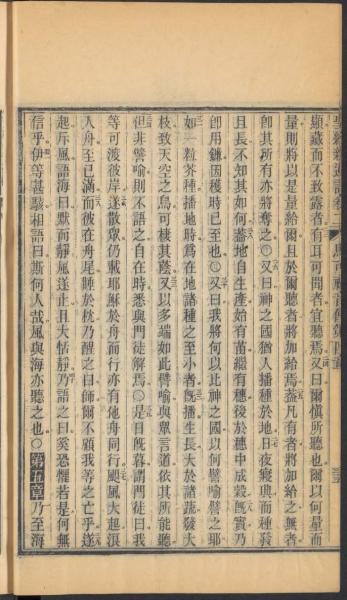 聖經新遺詔卷二　馬可福音傳第四章
顯藏而不致露者有耳可聞者宜聽焉又曰爾慎所聽也爾以何量而
量則將以是量給爾且於爾聽者將加給焉蓋凡有者將加給之無者
卽其所有亦將奪之〇又曰神之國猶人播種於地日夜寢興而種發
且長不知其如何蓋地自生產始有苗繼有穗後於穗中成穀旣實乃
卽用鐮因穫時已至也〇又曰我將何以比神之國以何譬喻譬之耶
如一粒芥種播地時爲在地諸種之至小者旣播生長大於諸蔬發大
枝致天空之鳥可棲其蔭又以多端如此譬喻與眾言道依其所能聽
但非譬喻則不語之自在時悉與門徒解焉〇是日旣暮謂門徒曰我
等可渡彼岸遂散眾仍載耶穌於舟而行亦有他舟同行颶風大起浪
入舟至已滿而彼在舟尾睡於枕乃醒之曰師爾不顧我等之亡乎遂
起斥風語海曰默而靜風遂止且大恬靜乃語之曰奚恐懼若是何無
信乎伊等甚駭相語曰斯何人哉風與海亦聽之也〇第五章乃至海